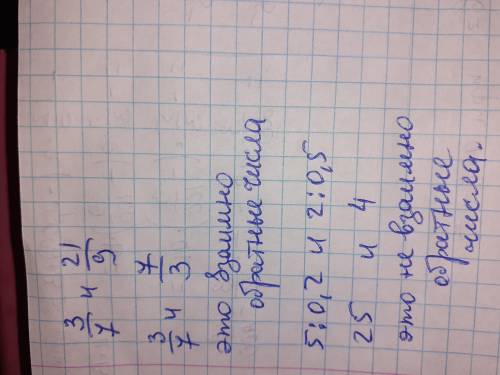 3/7 и 21/9
3/7 и 7/3
это взаимно
обратные числа
5:0,2 и 2:0,5
25 и 4
это не взаимно
обратные
числа.